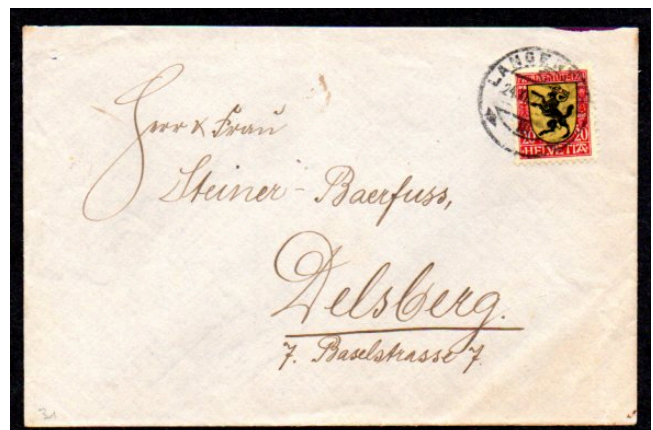 LANGEN
24.
20 20
HELVETIA
Herr & Frau
Steiner-Baerfuss,
Delsberg.
7. Baselstrasse 7.
31